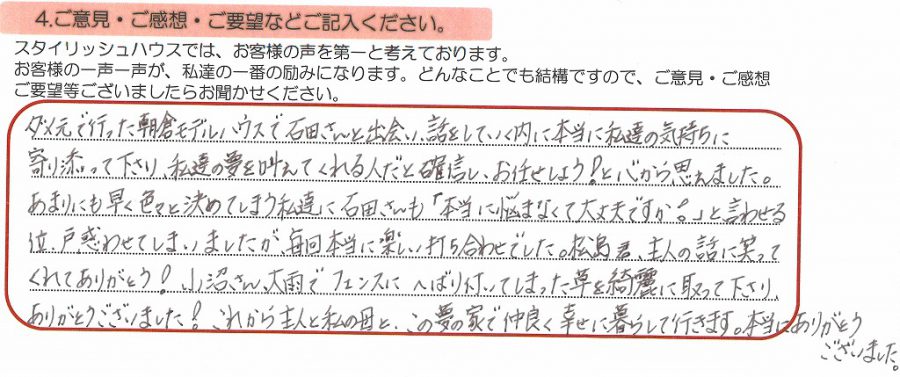 4.ご意見・ご感想・ご要望などご記入ください。
スタイリッシュハウスでは、お客様の声を第一と考えております。
お客様の一声一声が、私達の一番の励みになります。どんなことでも結構ですので、ご意見・ご感想
ご要望等ございましたらお聞かせください。
ダメ元で行った朝倉モデルハウスで石田さんと出会い、話をしていく内に本当に私達の気持ちに
寄り添って下さり、私達の夢を叶えてくれる人だと確信し、お任せしよう!と心から思えました。
あまりにも早く色々と決めてしまう私達に石田さんも「本当に悩まなくて大丈夫ですか?」と言わせる
位、戸惑わせてしまいましたが、毎回本当に楽しい打ち合わせでした。松島君、主人の話に笑って
くれてありがとう!小沼さん、大雨でフェンスにへばり付いてしまった草を綺麗に取って下さり、
ありがとうございました!これから主人と私の母と、この夢の家で仲良く幸せに暮らして行きます。本当にありがとう
ございました。